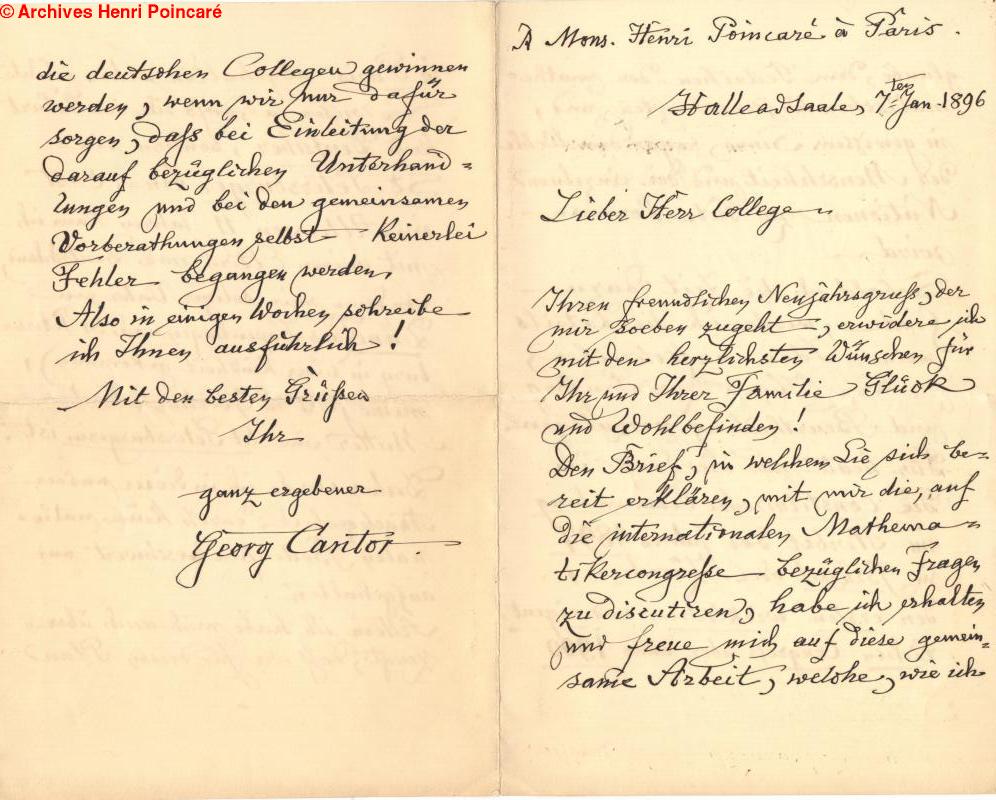 © Archives Henri Poincaré
A Mons. Henri Poincaré à Paris.
Halle a d Saale, 7ten Jan. 1896
Lieber Herr College
Ihren freundlichen Neujahrsgruss, der
mir soeben zugeht, erwidere ich
mit den herzlichsten Wünschen für
Ihr und Ihrer Familie Glück
und Wohlbefinden!
Den Brief, in welchem Sie sich be-
reit erklären, mit mir die, auf
die internationalen Mathema-
tikercongresse bezüglichen Fragen
zu discutiren, habe ich erhalten
und freue mich auf diese gemein-
same Arbeit, welche, wie ich
die deutschen Collegen gewinnen
werden, wenn wir nur dafür
sorgen, dass bei Einleitung der
darauf bezüglichen Unterhand-
lungen und bei den gemeinsamen
Vorberathungen selbst keinerlei
Fehler begangen werden.
Also in einigen Wochen schreibe
ich Ihnen ausführlich!
Mit den besten Grüssen
Ihr
ganz ergebener
Georg Cantor.